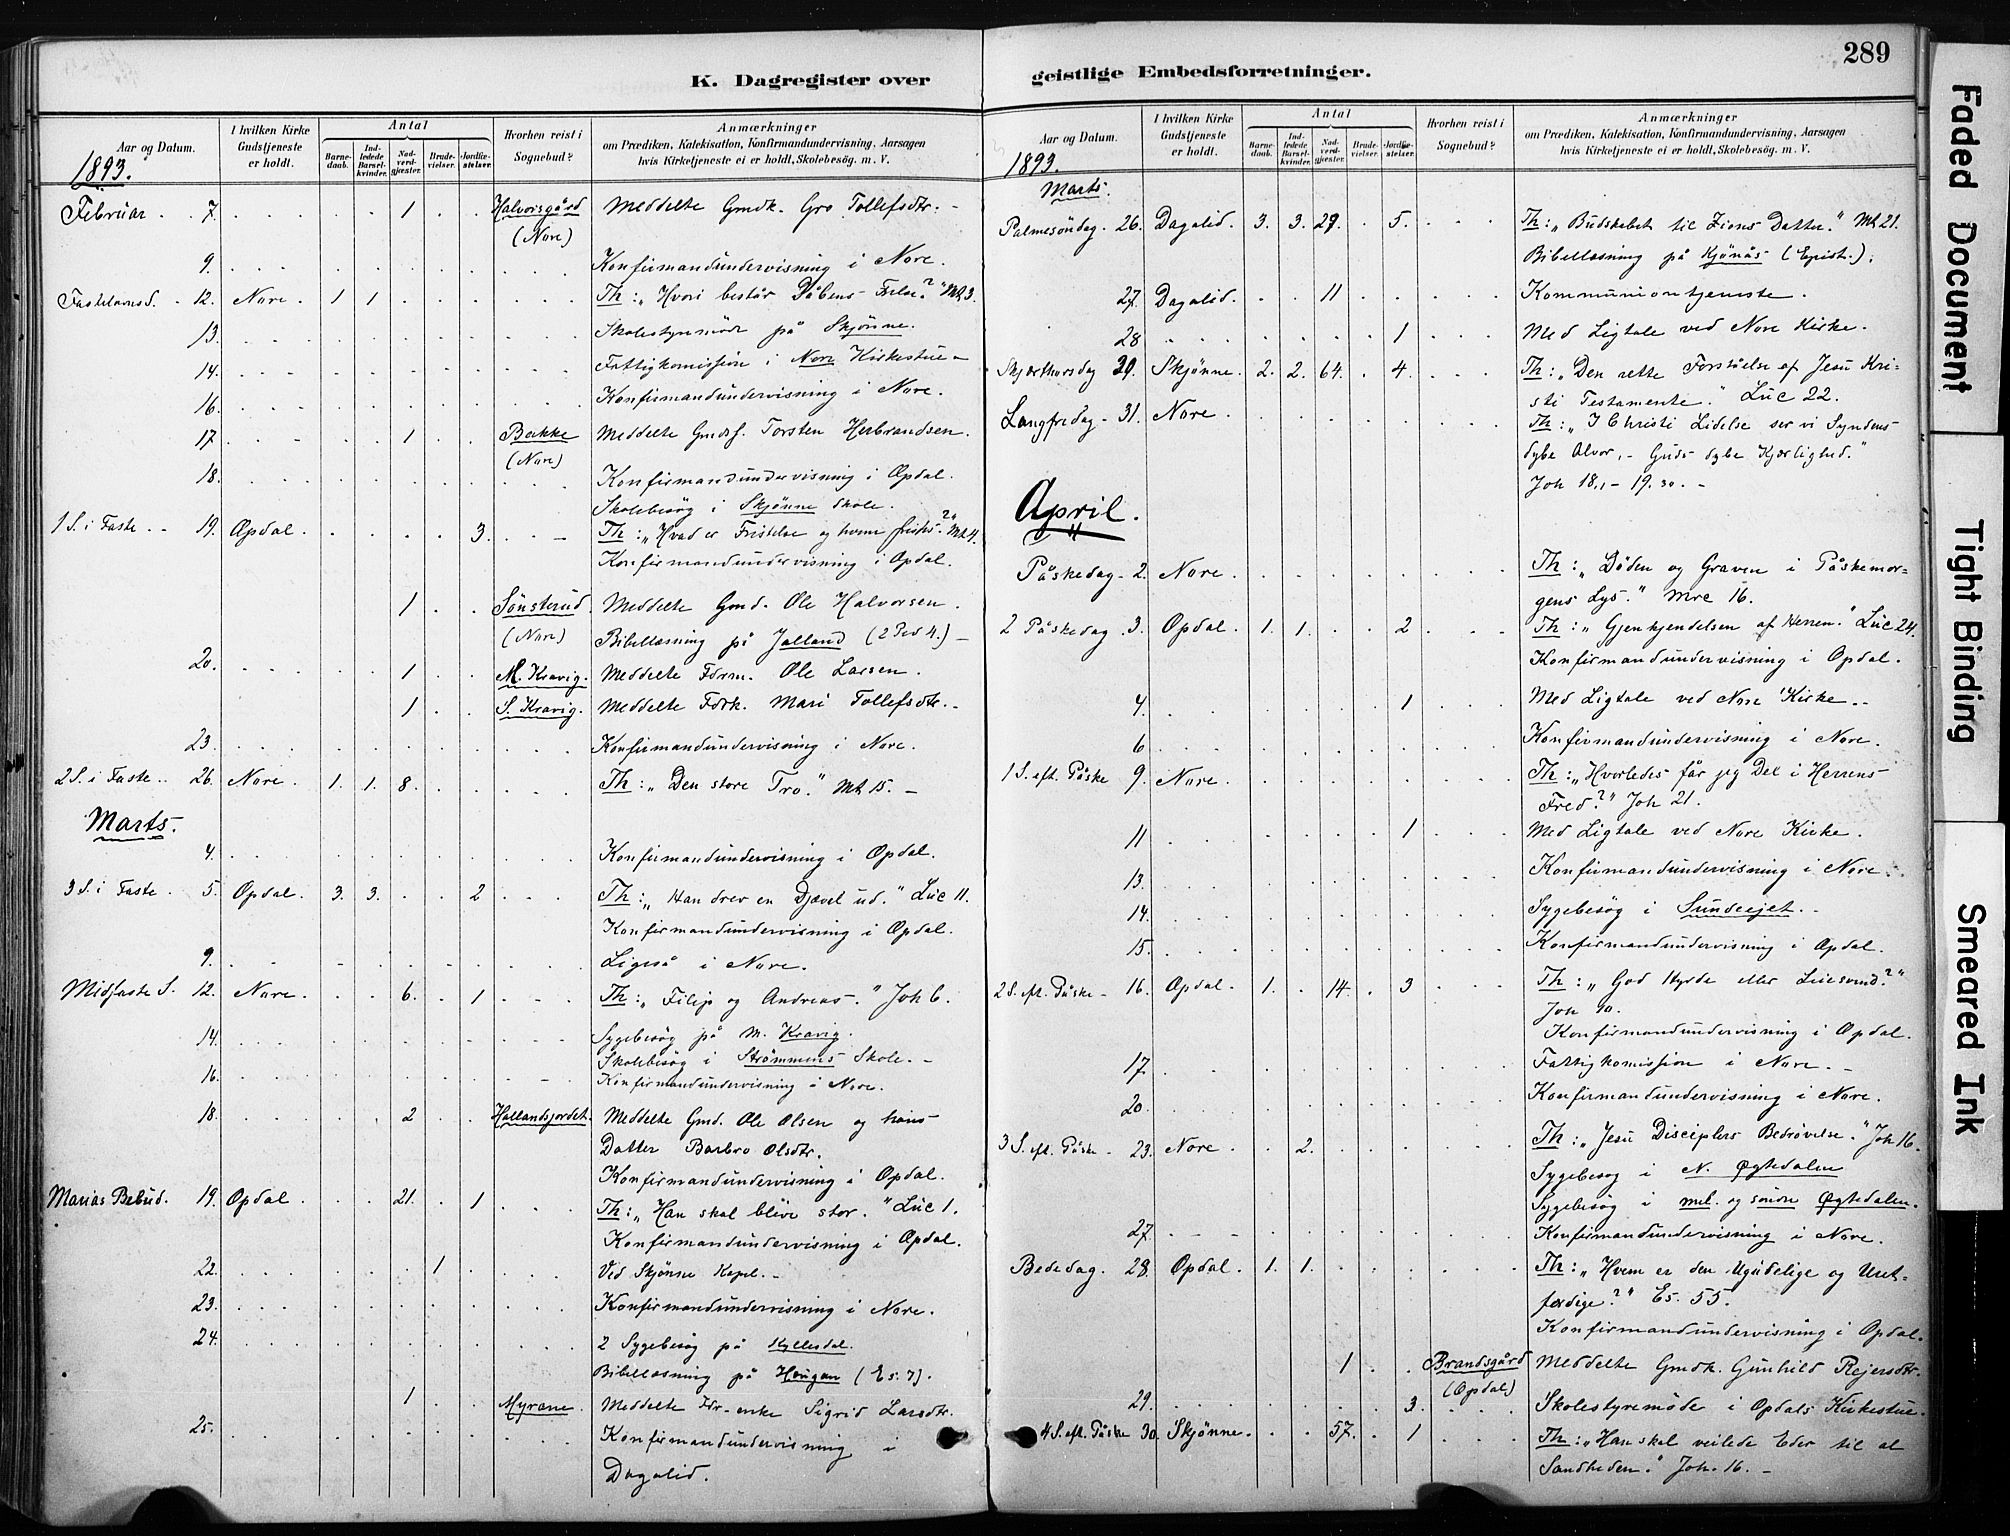 289
K. Dagregister over geistlige Embedsforretninger.
Aar og Datum.
I hvilken Kirke Gudstjeneste er holdt.
Antal
Barnedaab.
Indledede Barselkvinder.
Nadverdgjæster.
Brudevielser.
Jordfæstelser.
Hvorhen reist i Sognebud?
Anmærkninger
om Prædiken, Katekisation, Konfirmandundervisning, Aarsagen
hvis Kirketjeneste ei er holdt, Skolebesög. m. V.
1893.
Februar . . 7. 1 Halvorsgård Meddelte Gmdk. Gro Tollefsdtr. -
(Nore)
9. Konfirmandundervisning i Nore.
Fastelavnsd. - 12. Nore. 1 1 Th: "Hvori består Dåbens Frelse?" Mt 3.
13. Skolestyremöde på Skjönne.
14. Fattigkomission i Nore Kirkestue -
16. Konfirmandundervisning i Nore.
17. 1 Bakke Meddelte Gmdsf. Torsten Herbrandsen.
(Nore)
18. Konfirmandundervisning i Opdal.
Skolebesög i Skjönne Skole.
1 S. i Faste - - 19. Opdal. 3. Th: "Hvad er Fristelse og hvem fristes?" Mt 4.
Konfirmandundervisning i Opdal.
1 Sönsterud. Meddelte Gmd. Ole Halvorsen.
(Nore) Bibellæsning på Jalland (2 Ped 4.) -
20. 1 M. Kravig. Meddelte Fdrm. Ole Larsen.
1 S. Kravig. Meddelte Fdrk. Mari Tollefsdtr. -
23. Konfirmandundervisning i Nore.
2 S. i Faste - . 26. Nore. 1. 1. 8. Th: "Den store Tro." Mt 15. -
Marts.
4. Konfirmandundervisning i Opdal.
3 S. i Faste . 5. Opdal. 3. 3. 2 Th: "Han drev en Djævel ud." Luc 11.
Konfirmandundervisning i Opdal.
9. Ligeså i Nore.
Midfaste S. 12. Nore. 6. 1 Th: "Filip og Andreas." Joh 6.
14. Sygebesög på M. Kravig.
Skolebesög i Strömmens Skole. -
16. Konfirmandundervisning i Nore.
18. 2 Hallandsjordet. Meddelte Gmd. Ole Olsen og hans
Datter Barbro Olsdtr.
Konfirmandundervisning i Opdal.
Marias Bebud. 19. Opdal. 21. 1 Th: "Han skal blive stor." Luc 1.
Konfirmandundervisning i Opdal.
22. 1 Ved Skjönne Kapel. -
23. Konfirmandundervisning i Nore.
24. 2 Sygebesög på
Bibellæsning på Haugan (Es. 7).
1 Myrane. Meddelte Fdr-enke Sigrid Larsdtr.
25. Konfirmandundervisning i
Dagalid.
Aar og Datum.
I hvilken Kirke Gudstjeneste er holdt.
Antal
Barnedaab.
Indledede Barselkvinder.
Nadverdgjæster.
Brudevielser.
Jordfæstelser.
Hvorhen reist i Sognebud?
Anmærkninger
om Prædiken, Katekisation, Konfirmandundervisning, Aarsagen
hvis Kirketjeneste ei er holdt, Skolebesög. m. V.
1893.
Marts.
Palmesöndag. 26. Dagalid. 3. 3. 29. 5. Th: "Budskabet til Zions Datter." Mt 21.
Bibellæsning på Kjönås (Epist.).
27. Dagalid. 11 Kommuniontjeneste.
28 1 Med Ligtale ved Nore Kirke.
Skjærthorsdag 30. Skjönne. 2. 2. 64. 4. Th: "Den rette Forståelse af Jesu Kri-
sti Testamente." Luc 22.
Langfredag - 31. Nore. Th: "I Christi Lidelse ser vi Syndens
dybe Alvor, - Guds dybe Kjærlighed."
Joh 18.1 - 19.30. -
April.
Påskedag - 2. Nore. Th: "Döden og Graven i Påskemor-
gens Lys." Mrc 16.
2 Påskedag. 3. Opdal. 1. 1. 2 Th: "Gjenkjendelsen af Herren." Luc 24.
Konfirmandundervisning i Opdal.
4. 1 Med Ligtale ved Nore Kirke. -
6 Konfirmandundervisning i Nore.
1 S. eft. Påske 9. Nore. Th: "Hvorledes får jeg Del i Herrens
Fred?" Joh 21.
11 1 Med Ligtale ved Nore Kirke.
13. Konfirmandundervisning i Nore.
14. Sygebesög i Sundeejet. -
15. Konfirmandundervisning i Opdal.
2 S. eft. Påske - 16. Opdal. 1. 14. 3 Th: "God Hyrde eller Leiesvend?"
Joh 10.
Konfirmandundervisning i Opdal.
17. Fattigkomission i Nore. -
20. Konfirmandundervisning i Nore.
3 S. eft. Påske - 23. Nore. 2. Th: "Jesu Disciplers Bedrövelse." Joh 16.
Sygebesög i N. Ögtedalen
Sygebesög i mel. og söndre Ögtedalen.
27. Konfirmandundervisning i Nore.
Bededag. 28. Opdal. 1. 1. Th: "Hvem er den Ugudelige og Uret-
færdige?" Es. 55.
Konfirmandundervisning i Opdal.
1 Brandsgård Meddelte Gmdk. Gunhild Rejersdtr.
(Opdal)
29. 3. Skolestyremöde i Opdals Kirkestue.
4 S. eft. Påske 30. Skjönne. 57. 1 Th: "Han skal veilede Eder til al
Sandheden." Joh. 16. -
Faded Document
Tight Binding
Smeared Ink